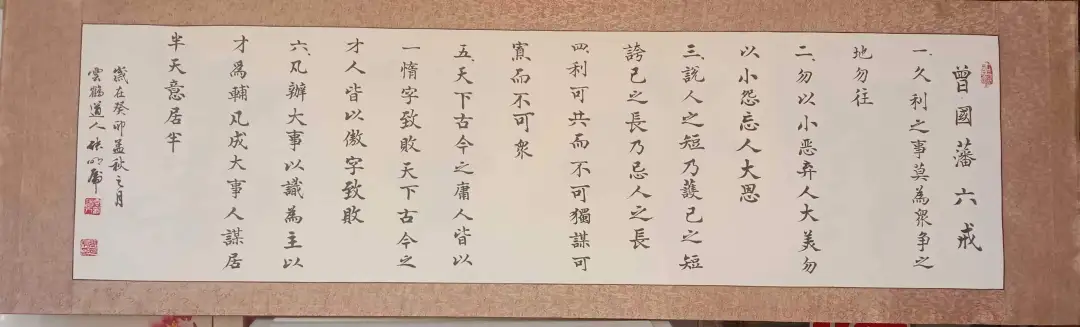 曾國藩六戒
一、久利之事莫為眾争之
地勿往
二、勿以小恶弃人大美勿
以小怨忘人大恩
三、說人之短乃護己之短
誇己之長乃忌人之長
四、利可共而不可獨謀可
寡而不可眾
五、天下古今之庸人皆以
一惰字致敗天下古今之
才人皆以傲字致敗
六、凡辦大事以識為主以
才為輔凡成大事人謀居
半天意居半
歲在癸卯孟秋之月
雲鶴道人